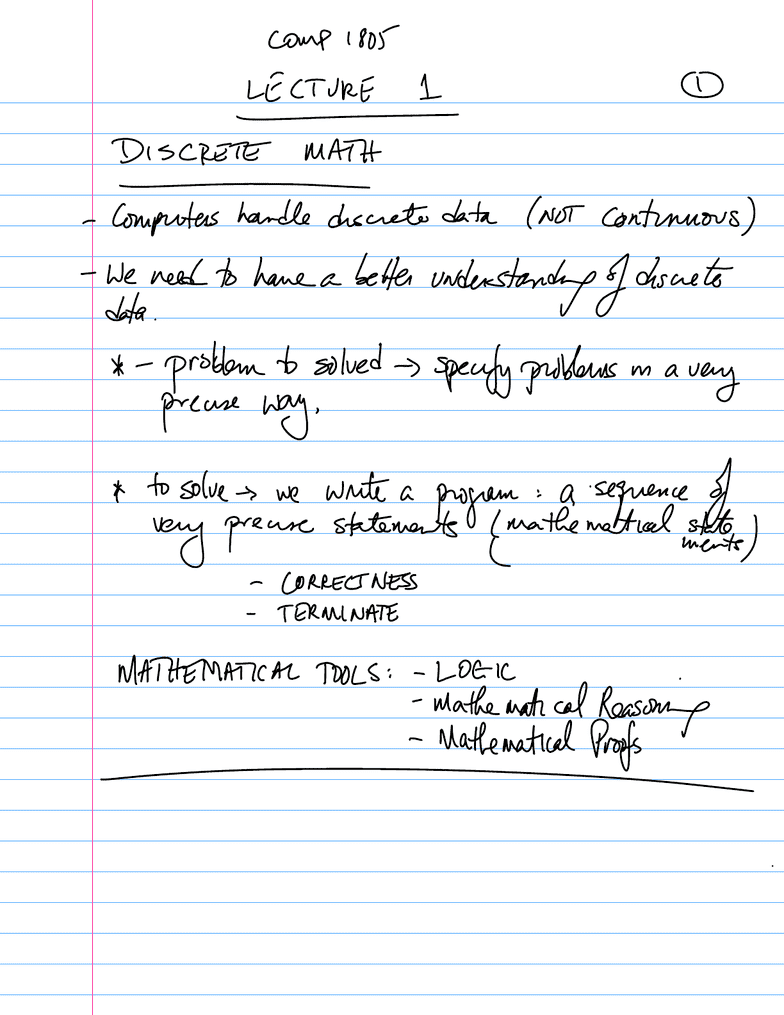 COMP 1805
LECTURE 1
①
DISCRETE MATH
- Computers handle discrete data (NOT continuous)
- We need to have a better understanding of discrete
data.
* - problem to solved → specify problems in a very
precise way.
* to solve → we write a program : a sequence of
very precise statements (mathematical state
ments)
- CORRECTNESS
- TERMINATE
MATHEMATICAL TOOLS: - LOGIC
- Mathematical Reasoning
- Mathematical Proofs